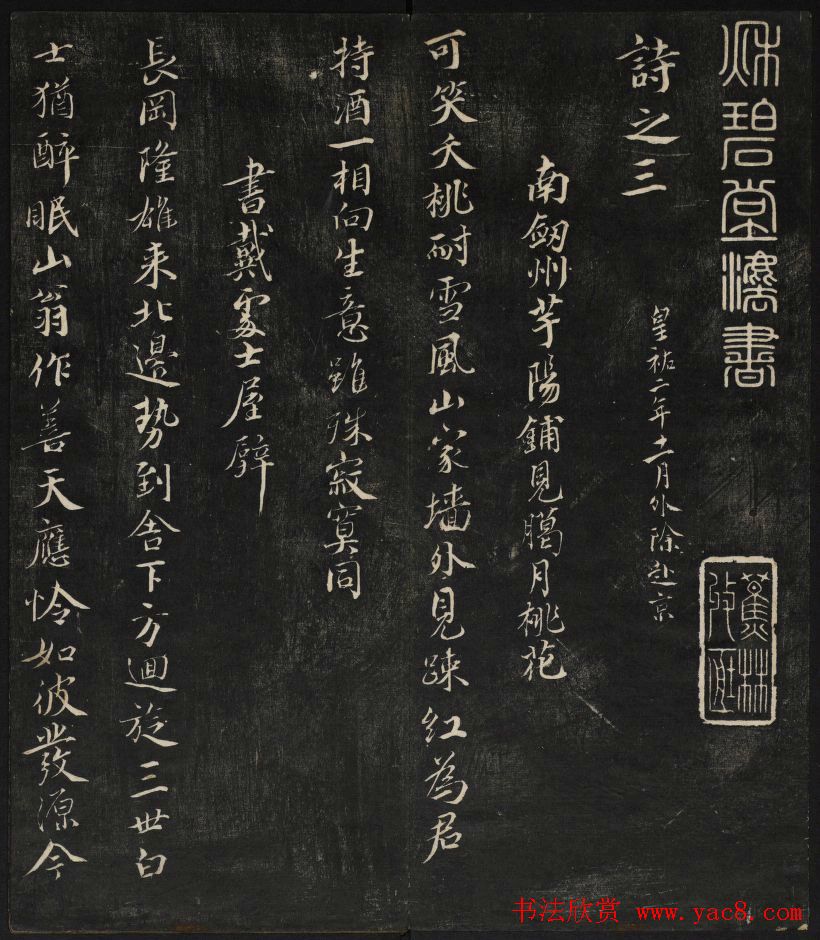 秋碧堂法書
蕉林收藏
詩之三
皇祐二年十一月外除赴京
南劒州芋陽鋪見臈月桃花
可笑夭桃耐雪風山家墻外見踈紅為君
持酒一相向生意雖殊寂寞同
書戴處士屋壁
長岡隆雄来北邊勢到舍下方迴旋三世白
士猶醉眠山翁作善天應憐如彼發源今
书法欣赏 www.yac8.com